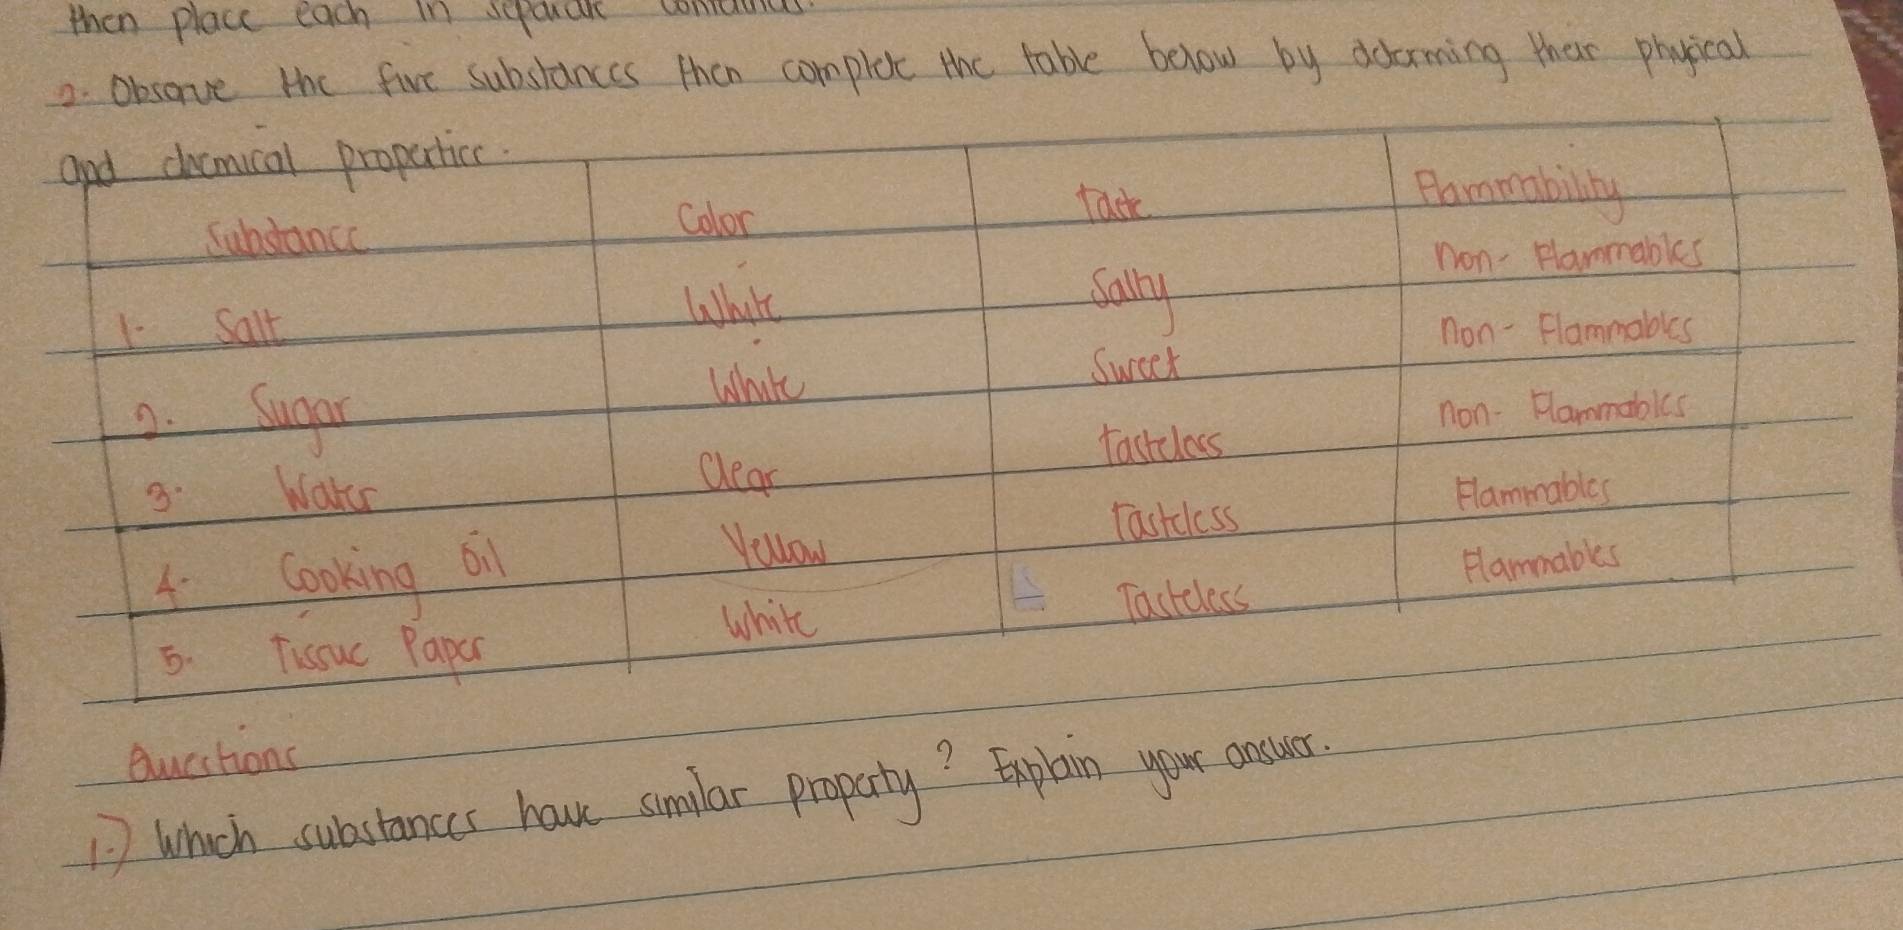 then place each in separate containers.
2. Observe the five substances then complete the table below by determing their physical
and chemical properties.
Substance Color Taste Flammability
1. Salt White Salty Non-Flammables
2. Sugar White Sweet Non-Flammables
3. Water Clear Tasteless Non-Flammables
4. Cooking Oil Yellow Tasteless Flammables
5. Tissue Paper White Tasteless Flammables
Questions
1.) Which substances have similar property? Explain your answer.